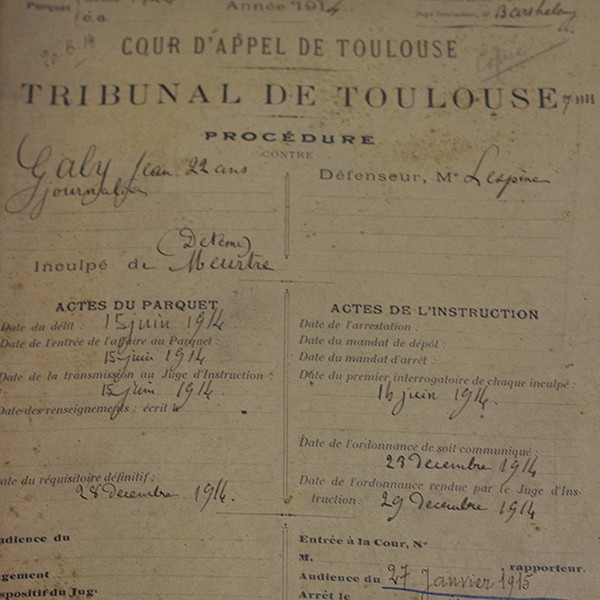 Parquet
Année 1914
Juge d'Instruction, M. Barthelemy
Copie
COUR D'APPEL DE TOULOUSE
TRIBUNAL DE TOULOUSE
PROCÉDURE
CONTRE
Galy Jean 22 ans
journalier
Défenseur, Me Lespine
(Détenu)
Inculpé de Meurtre
ACTES DU PARQUET
Date du délit : 15 juin 1914
Date de l'entrée de l'affaire au Parquet :
15 juin 1914
Date de la transmission au Juge d'Instruction :
15 juin 1914
Date des renseignements : écrit
Date du réquisitoire définitif :
28 decembre 1914.
ACTES DE L'INSTRUCTION
Date de l'arrestation :
Date du mandat de dépôt :
Date du mandat d'arrêt :
Date du premier interrogatoire de chaque inculpé :
16 juin 1914.
Date de l'ordonnance de soit communiqué :
23 decembre 1914
Date de l'ordonnance rendue par le Juge d'Ins-
truction : 29 decembre 1914
Audience du
Jugement
Dispositif du Jug
Entrée à la Cour, No
M. rapporteur.
Audience du 27 Janvier 1915
Arrêt le